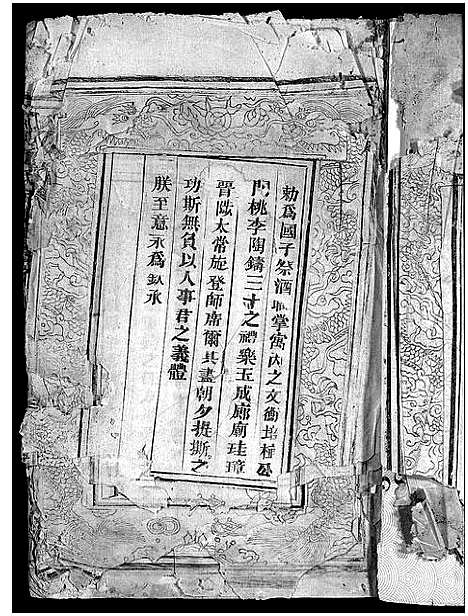 勅爲國子祭酒職掌寓內之文衡培植公
門桃李陶鑄三才之禮樂玉成廊廟珪璋
晉陟太常旋登師席爾其盡朝夕提撕之
功斯無負以人事君之義體
朕至意永爲欽承